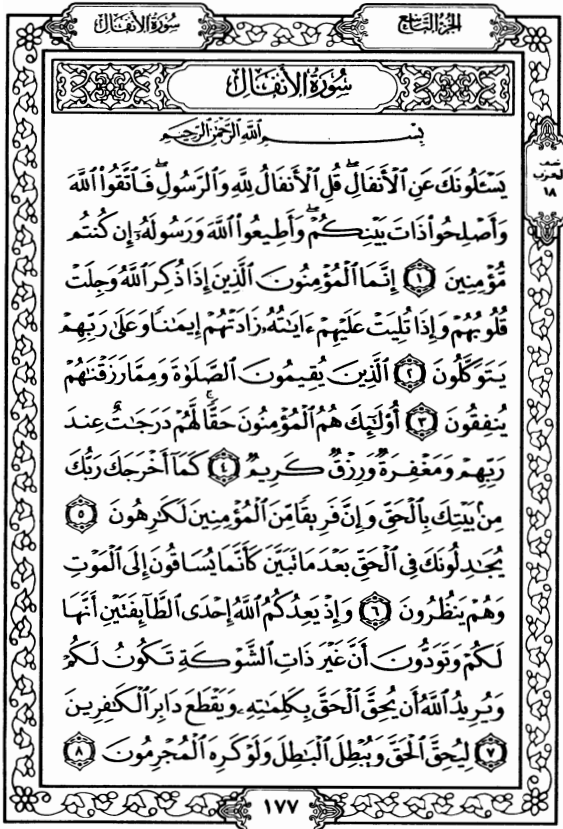 سُورَةُ الأَنفَالِ
الجُزْءُ التَّاسِعُ
سُورَةُ الأَنفَالِ
بِسْمِ اللَّهِ الرَّحْمَٰنِ الرَّحِيمِ
نصف
الحزب
١٨
يَسْـَٔلُونَكَ عَنِ الْأَنفَالِ ۖ قُلِ الْأَنفَالُ لِلَّهِ وَالرَّسُولِ ۖ فَاتَّقُوا۟ اللَّهَ
وَأَصْلِحُوا۟ ذَاتَ بَيْنِكُمْ ۖ وَأَطِيعُوا۟ اللَّهَ وَرَسُولَهُۥٓ إِن كُنتُم
مُّؤْمِنِينَ ١ إِنَّمَا الْمُؤْمِنُونَ الَّذِينَ إِذَا ذُكِرَ اللَّهُ وَجِلَتْ
قُلُوبُهُمْ وَإِذَا تُلِيَتْ عَلَيْهِمْ ءَايَـٰتُهُۥ زَادَتْهُمْ إِيمَـٰنًا وَعَلَىٰ رَبِّهِمْ
يَتَوَكَّلُونَ ٢ الَّذِينَ يُقِيمُونَ الصَّلَوٰةَ وَمِمَّا رَزَقْنَـٰهُمْ
يُنفِقُونَ ٣ أُو۟لَـٰٓئِكَ هُمُ الْمُؤْمِنُونَ حَقًّا ۚ لَّهُمْ دَرَجَـٰتٌ عِندَ
رَبِّهِمْ وَمَغْفِرَةٌ وَرِزْقٌ كَرِيمٌ ٤ كَمَآ أَخْرَجَكَ رَبُّكَ
مِنۢ بَيْتِكَ بِالْحَقِّ وَإِنَّ فَرِيقًا مِّنَ الْمُؤْمِنِينَ لَكَـٰرِهُونَ ٥
يُجَـٰدِلُونَكَ فِى الْحَقِّ بَعْدَ مَا تَبَيَّنَ كَأَنَّمَا يُسَاقُونَ إِلَى الْمَوْتِ
وَهُمْ يَنظُرُونَ ٦ وَإِذْ يَعِدُكُمُ اللَّهُ إِحْدَى الطَّآئِفَتَيْنِ أَنَّهَا
لَكُمْ وَتَوَدُّونَ أَنَّ غَيْرَ ذَاتِ الشَّوْكَةِ تَكُونُ لَكُمْ
وَيُرِيدُ اللَّهُ أَن يُحِقَّ الْحَقَّ بِكَلِمَـٰتِهِۦ وَيَقْطَعَ دَابِرَ الْكَـٰفِرِينَ
٧ لِيُحِقَّ الْحَقَّ وَيُبْطِلَ الْبَـٰطِلَ وَلَوْ كَرِهَ الْمُجْرِمُونَ ٨
١٧٧